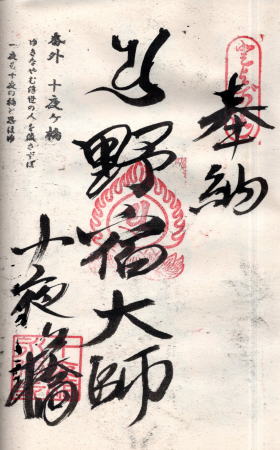 奉納
野宿大師
十夜ヶ橋
番外 十夜ヶ橋
ゆきなやむ浮世の人を渡さずば
一夜も十夜の橋と思ほゆ